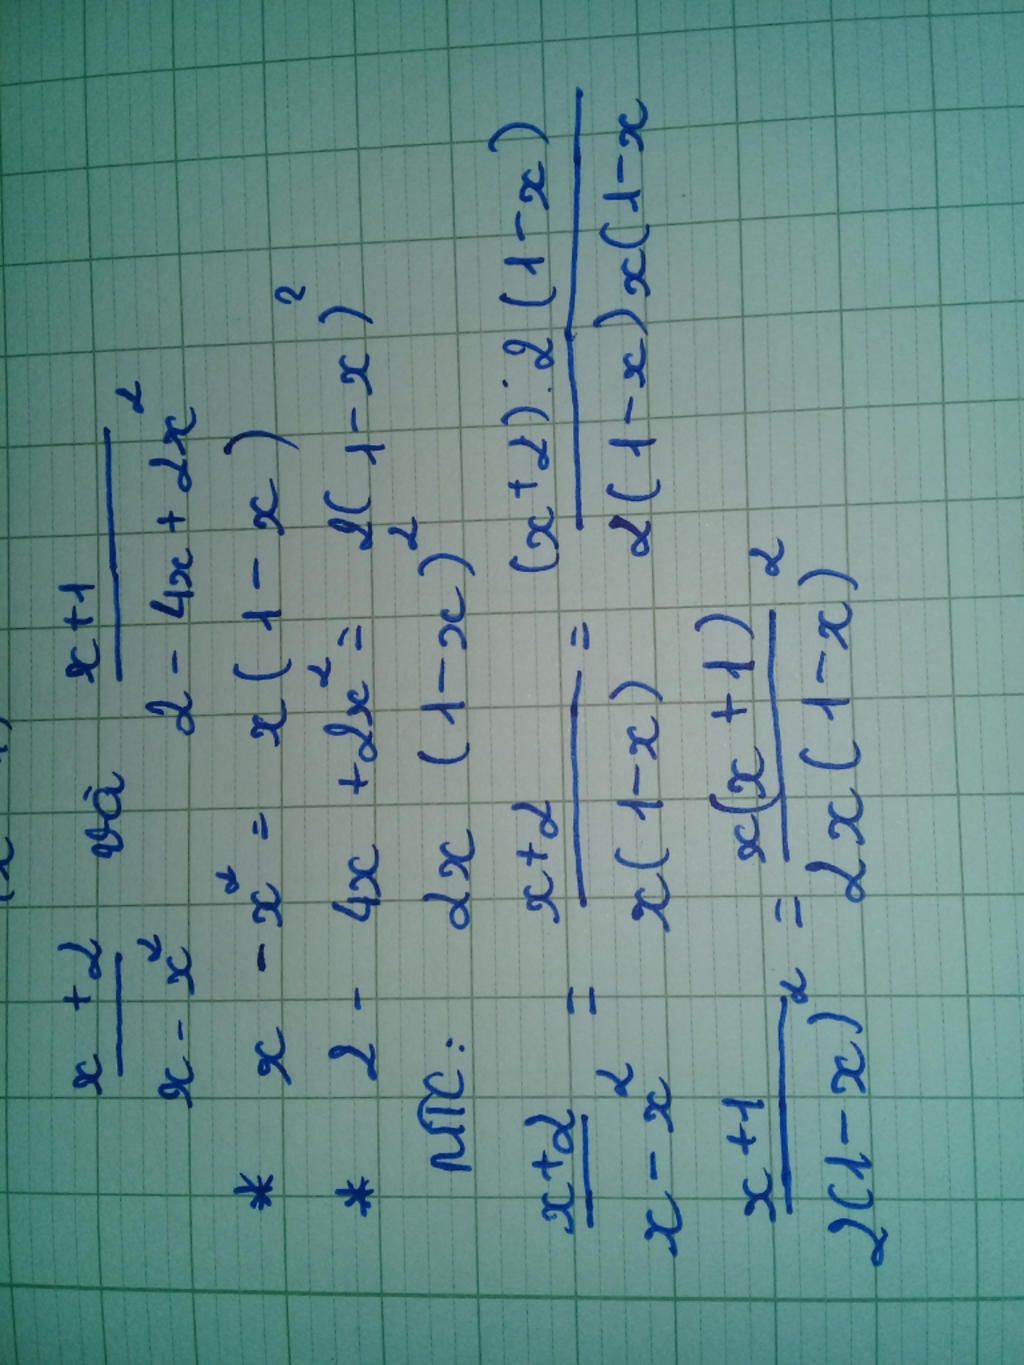 x + 2 / x - x² và x + 1 / 2 - 4x + 2x²
* x - x² = x(1 - x)²
* 2 - 4x + 2x² = 2(1 - x)²
MTC: 2x (1 - x)²
x+2 / x - x² = x+2 / x(1 - x) = (x + 2).2(1 - x) / 2(1 - x)x(1 - x
x + 1 / 2(1 - x)² = x(x + 1) / 2x(1 - x)²